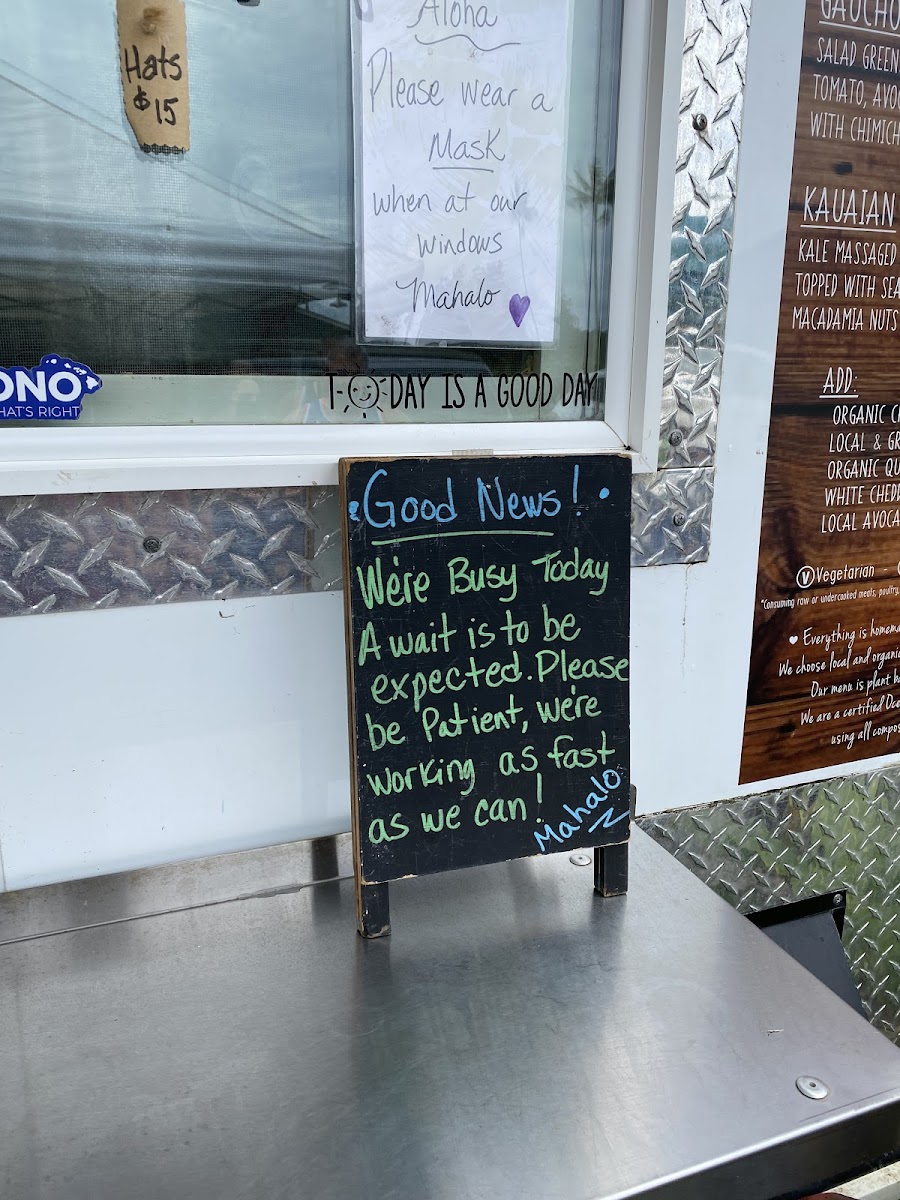 Hats
$15
Aloha
Please wear a
Mask
when at our
windows
Mahalo
ONO
THAT'S RIGHT
TODAY IS A GOOD DAY
Good News!
We're Busy Today
A wait is to be
expected. Please
be Patient, we're
working as fast
as we can!
Mahalo
GAUCHO
SALAD GREEN
TOMATO,
WITH
KAUAIAN
KALE MASSAGED
TOPPED WITH
MACADAMIA NUTS
ADD:
ORGANIC
LOCAL &
ORGANIC
WHITE
LOCAL
V Vegetarian -
*Consuming raw or undercooked meats, poultry,
Everything is
We choose local and
Our menu is plant
We are a certified
using all